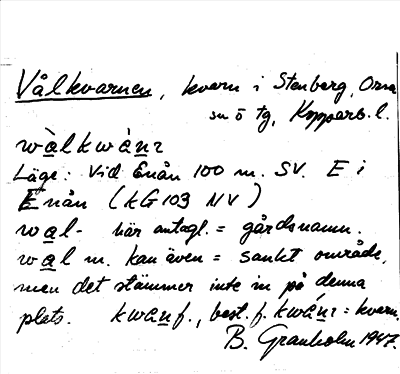 Vålkvarnen, kvarn i Stenberg, Orsa
sn ö tg, Kopparb. l.
wàlkwànɿ
Läge: Vid Enån 100 m. SV. E i
Enån (KG 103 NV)
wal- här antagl. = gårdsnamn.
wal m. kan även = sankt område,
men det stämmer inte in på denna
plats. kwan f., best. f. kwánɿ = kvarn.
B. Granholm 1947.